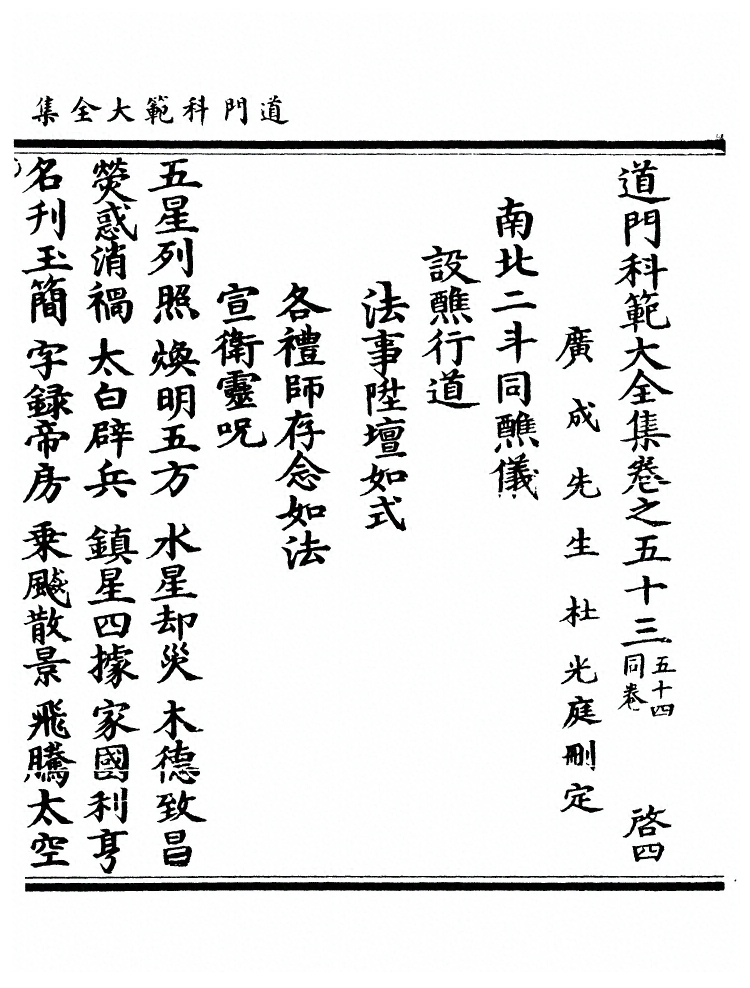 道門科範大全集
道門科範大全集卷之五十三 五十四同卷 啓四
廣成先生杜光庭刪定
南北二斗同醮儀
設醮行道
法事陞壇如式
各禮師存念如法
宣衛靈呪
五星列照 煥明五方 水星却災 木德致昌
熒惑消禍 太白辟兵 鎮星四據 家國利亨
名刊玉簡 字録帝房 乗飈散景 飛騰太空